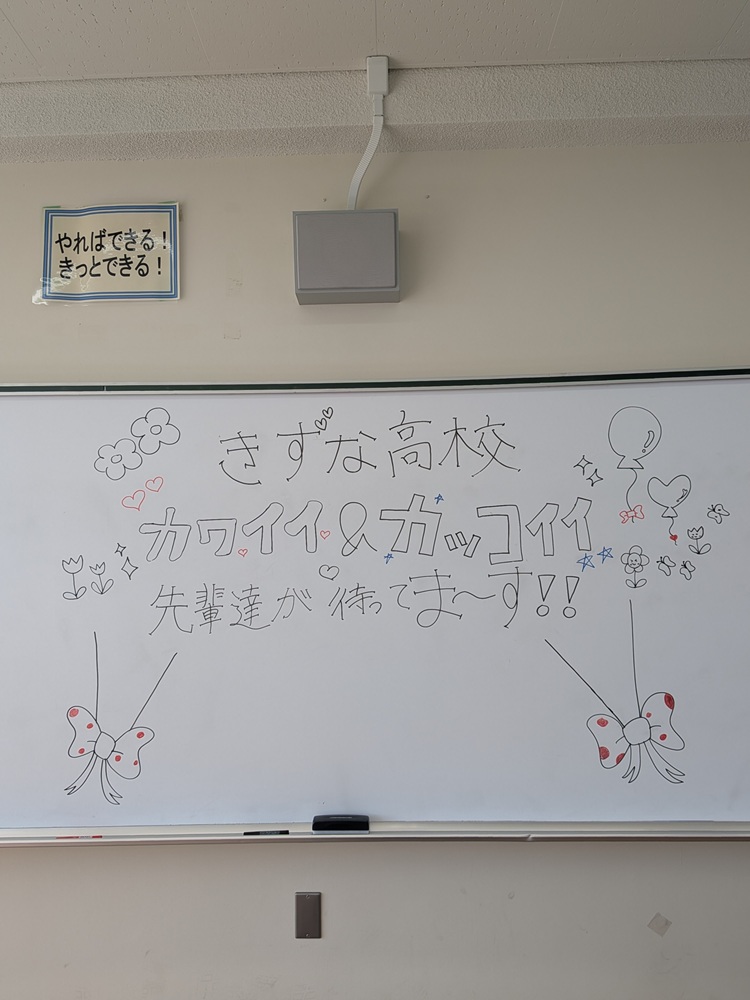 やればできる！
きっとできる！
きずな高校
カワイイ&カッコイイ
先輩達が待ってま～す!!